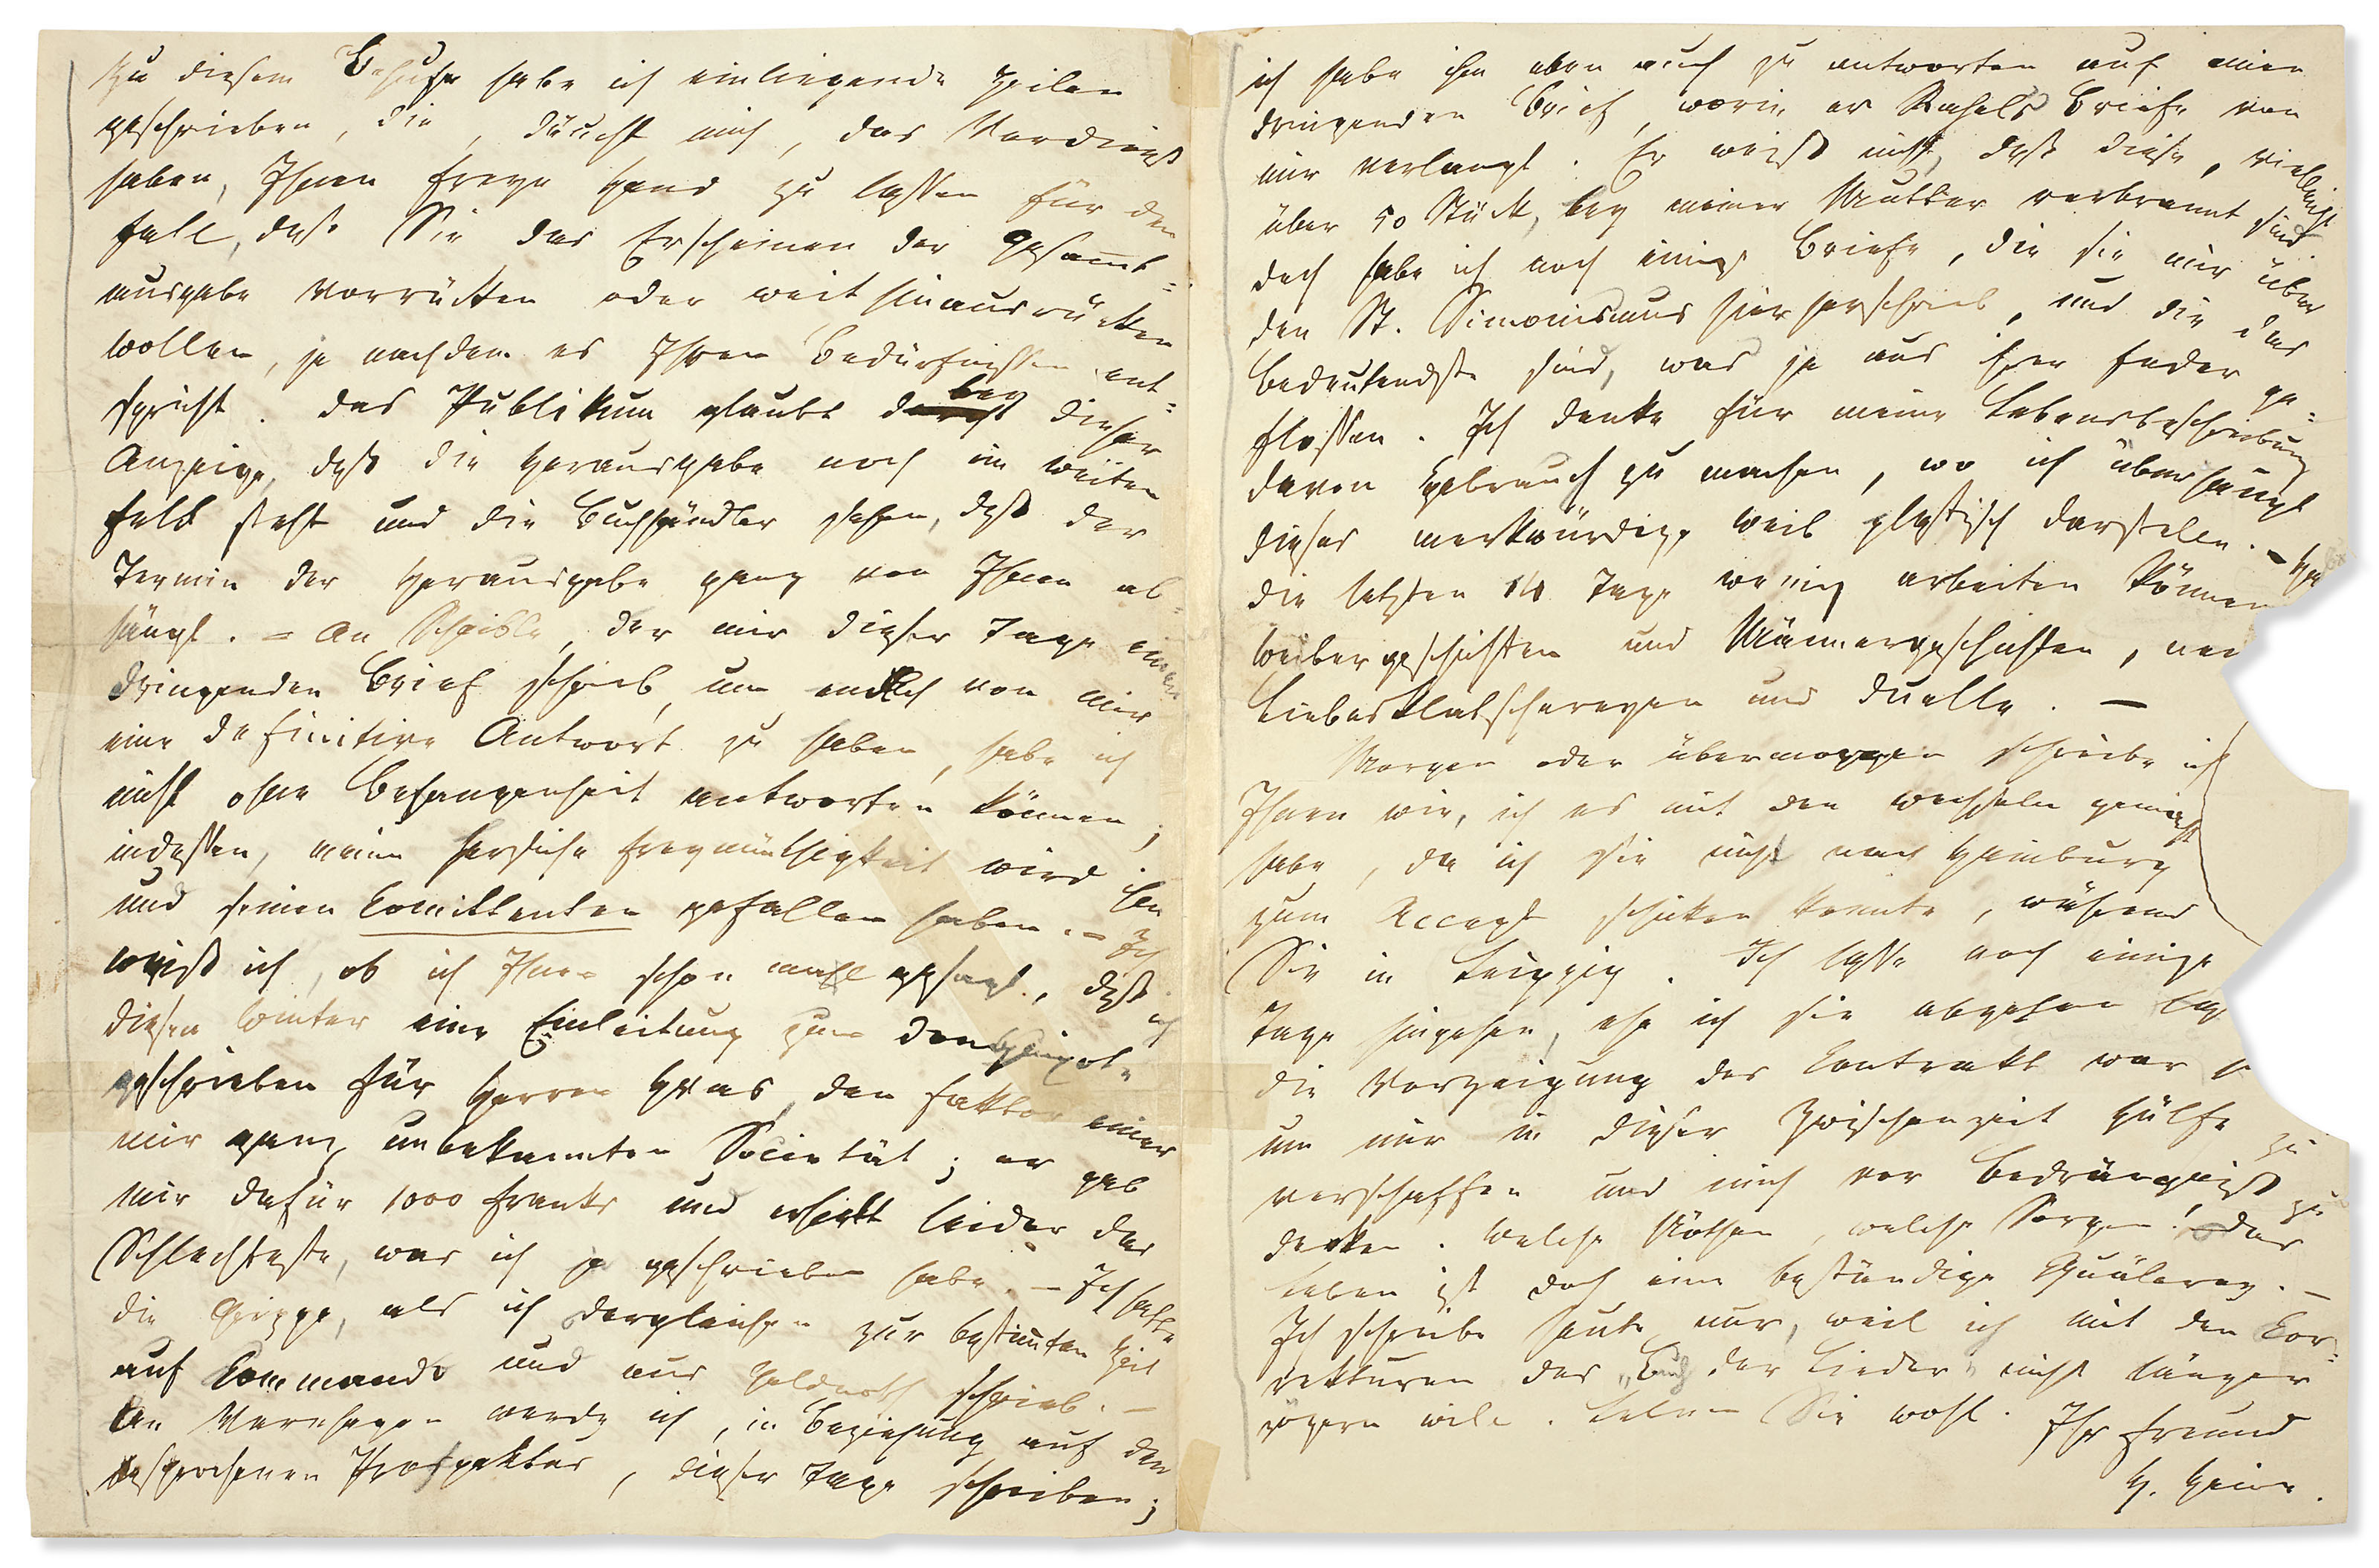 Zu diesem Behufe habe ich einliegende Zeilen
geschrieben, die, däucht mich, das Verdienst
haben, Ihnen freye Hand zu lassen für den
Fall, daß Sie das Erscheinen der Gesammt=
ausgabe vorrücken oder weit hinausrücken
wollen, je nachdem es Ihren Bedürfnissen ent=
spricht. Das Publikum glaubt bey dieser
Anzeige, daß die Herausgabe noch im weiten
Feld steht und die Buchhändler sehen, daß der
Termin der Herausgabe ganz von Ihnen ab=
hängt. – An Scheible, der mir dieser Tage einen
dringenden Brief schrieb, um endlich von mir
eine definitive Antwort zu haben, habe ich
nicht ohne Befangenheit antworten können;
indessen, meine herzliche Freymüthigkeit wird ihm
und seinen Comittenten gefallen haben. – Ich
weiß ich, ob ich Ihnen schon mahl gesagt, daß ich
diesen Winter eine Einleitung zum Donquixot
geschrieben für Herren Hvas, den Faktor einer
mir ganz unbekannten Societät; er gab
mir dafür 1000 Franks und erhielt leider das
Schlechteste, was ich je geschrieben habe. – Ich hatte
die Grippe, als ich dergleichen zur bestimmten Zeit
auf Commando und aus Geldnoth schrieb. –
An Varnhagen werde ich, in Beziehung auf den
besprochenen Prospektus, dieser Tage schreiben;
ich habe ihm eben auch zu antworten auf einen
dringenden Brief, worin er Rahels Briefe von
mir verlangt. Er weiß nicht, daß diese, vielleicht
über 50 Stück, bey meiner Mutter verbrannt sind.
doch habe ich noch einige Briefe, die sie mir über
den St. Simonismus hierherschrieb, und die das
Bedeutendste sind, was je aus ihrer Feder ge=
flossen. Ich denke für meine Lebensbeschreibung
davon Gebrauch zu machen, wo ich überhaupt
dieses merkwürdige Weib plastisch darstelle. –
die letzten 14 Tage wenig arbeiten können
Weibergeschichten und Männergeschichten,
Liebesklatschereyen und Duelle. –
Morgen oder übermorgen schreibe ich
Ihnen wie, ich es mit den Wechseln gemacht
habe, da ich sie nicht nach Hamburg
zum Accept schicken konnte, während
Sie in Leipzig. Ich lasse noch einige
Tage hingehen, ehe ich sie abgehen
die Vorzeigung des Contrakt war
um mir in dieser Zwischenzeit Hülfe zu
verschaffen und mich vor Bedrängniß zu
decken. Welche Nöthen, welche Sorgen! das
Leben ist doch eine beständige Quälerey. –
Ich schreibe heute nur, weil ich mit den Cor=
rekturen des „Buch der Lieder“ nicht länger
zögern will. Leben Sie wohl. Ihr Freund
H. Heine.